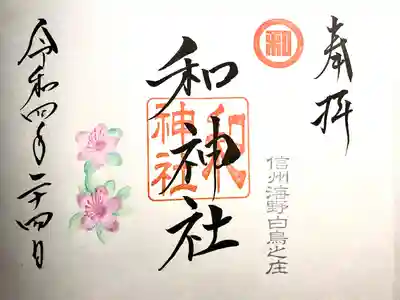 奉拝
和
信州海野白鳥之庄
和神社
和神社
令和四年二十四日